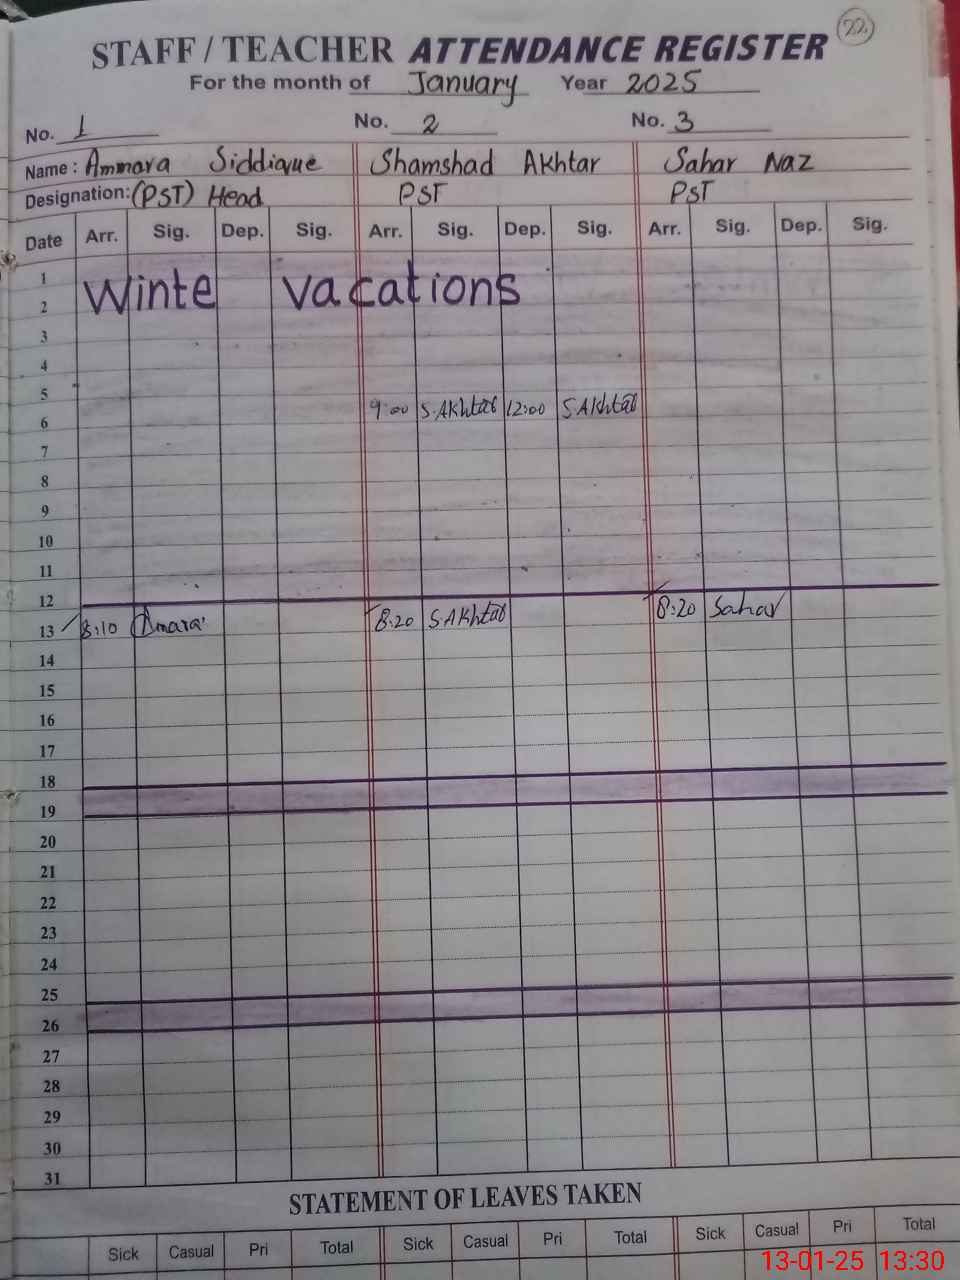 22
STAFF / TEACHER ATTENDANCE REGISTER
For the month of January Year 2025
No. 1 No. 2 No. 3
Name : Ammara Siddique Shamshad Akhtar Sahar Naz
Designation: (PST) Head PST PST
Date Arr. Sig. Dep. Sig. Arr. Sig. Dep. Sig. Arr. Sig. Dep. Sig.
1
Winte vacations
2
3
4
5
6 9:00 S.Akhtar 12:00 S.Akhtar
7
8
9
10
11
12
13 8:10 Amara 8:20 S.Akhtar 8:20 Sahar
14
15
16
17
18
19
20
21
22
23
24
25
26
27
28
29
30
31
STATEMENT OF LEAVES TAKEN
Sick Casual Pri Total Sick Casual Pri Total Sick Casual Pri Total
13-01-25 13:30